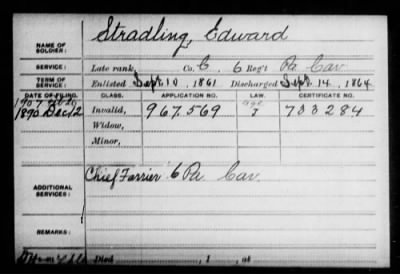 NAME OF SOLDIER: Stradling, Edward
SERVICE: Late rank, Co. C, 6 Reg't Pa Cav.
TERM OF SERVICE: Enlisted Sept. 10, 1861 Discharged Sept. 14, 1864
DATE OF FILING. CLASS. APPLICATION NO. LAW. CERTIFICATE NO.
1907
1890 Dec 12 Invalid, 967.569 age 733284
Widow,
Minor,
ADDITIONAL SERVICES: Chief Farrier 6 Pa Cav.
REMARKS:
Died , 1 , at